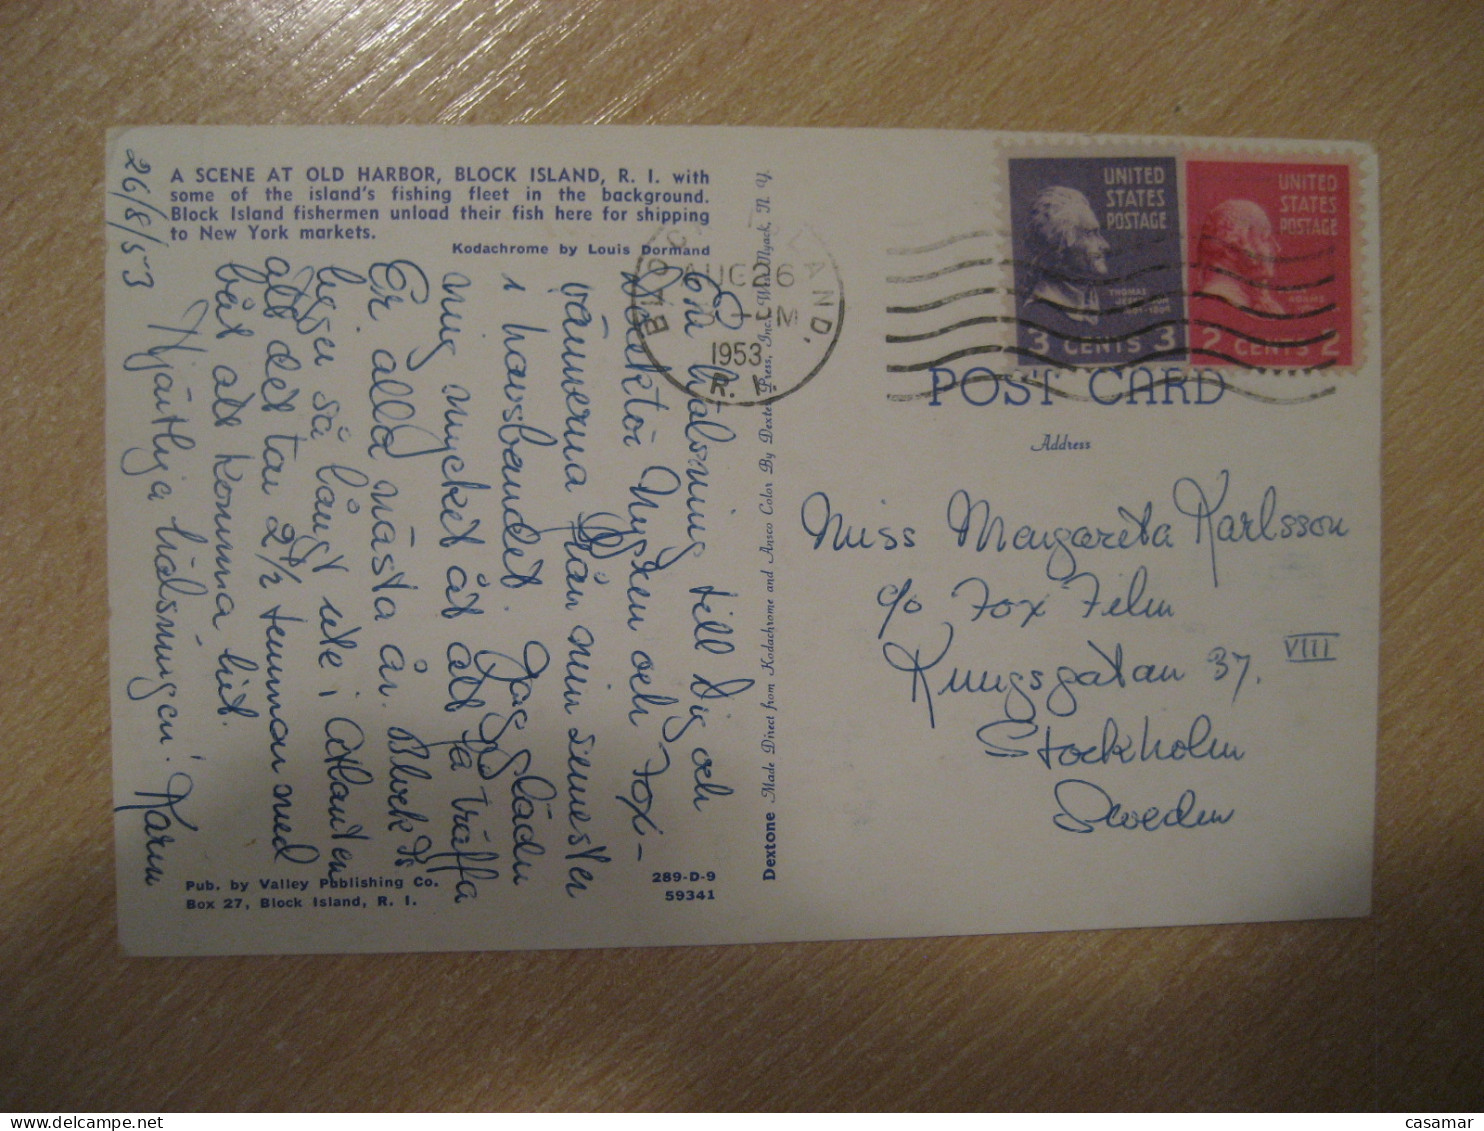 A SCENE AT OLD HARBOR, BLOCK ISLAND, R. I. with
some of the island's fishing fleet in the background.
Block Island fishermen unload their fish here for shipping
to New York markets.
Kodachrome by Louis Dormand
26/8/53
En hälsning till Dig och
Direktör och Fox-
vännerna från min semester
i havsbandet. Jag gläder
mig mycket åt att få träffa
Er alla nästa år. Block Is
ligger så långt ute i Atlanten
att det tar 2½ timmar med
båt att komma hit.
Hjärtliga hälsningar! Karin
Pub. by Valley Publishing Co.
Box 27, Block Island, R. I.
289-D-9
59341
Dextone Made Direct from Kodachrome and Ansco Color By Dexter Press, Inc., West Nyack, N. Y.
BLOCK ISLAND,
AUG 26
1953
R. I.
UNITED
STATES
POSTAGE
THOMAS
JEFFERSON
1801-1809
3 CENTS 3
UNITED
STATES
POSTAGE
ADAMS
2 CENTS 2
POST CARD
Address
Miss Margareta Karlsson
c/o Fox Film
Kungsgatan 37. VIII
Stockholm
Sweden
casamar